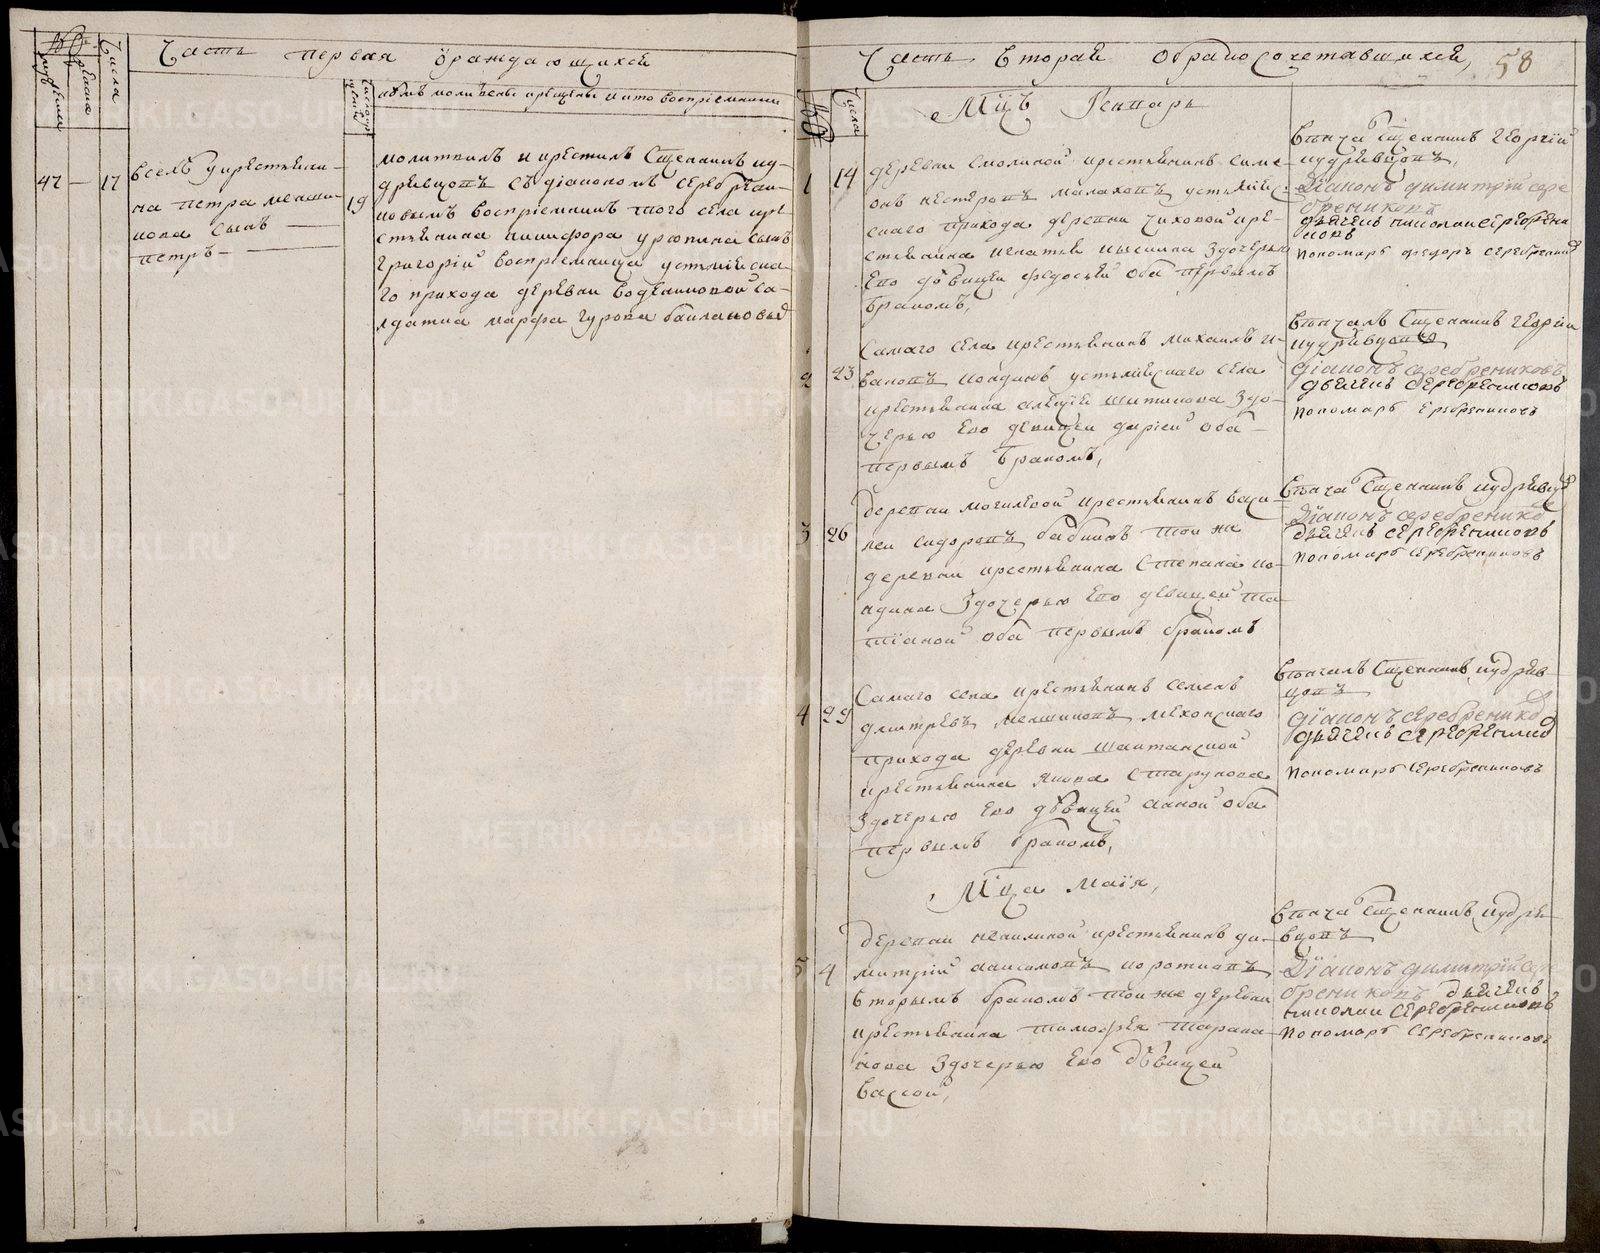 Часть первая о раждающихся
Числа
кѣмъ молитвены крещены и кто воспрiемники
47 — 17
в селѣ у крестьяни-
на петра меньши-
кова сынъ
петръ —
19
молитвилъ и крестилъ Священникъ ку-
дрявцовъ съ дiакономъ серебрени-
ковымъ воспрiемникъ того села кре-
стьянина никифора урюпина сынъ
григорiй воспрiемница устьмiяска-
го прихода деревни водениковой са-
лдатка марфа гурова
Часть вторая о бракосочетавшихся, 58
Числа
Мцъ Генварь
1 14
деревни смолиной крестьянинъ симе-
онъ нестеровъ малаховъ устьмiяс-
скаго прихода деревни чиховой кре-
стьянина игнатья здочерью
его дѣвицей федосьей оба первымъ
бракомъ,
Вѣнча Священникъ георгiй
кудрявцовъ,
Дiаконъ димитрiй сере
бренниковъ
дьячекъ николаи серебрени
ковъ
пономарь федоръ серебреник
2 23
Самаго села крестьянинъ михаилъ и-
вановъ кокдинъ устьмiяскаго села
крестьянина алексiя шитикова здо-
черью его девицей дарiей оба
первымъ бракомъ,
Вѣнчалъ Священникъ георгiи
кудрявцовъ
дiаконъ серебрениковъ
дьячекъ серебрениковъ
пономарь серебрениковъ
3 26
деревни могилевой крестьянинъ васи-
леи сидоровъ бабинъ той же
деревни крестьянина степана ко-
кдина здочерью его девицей та-
тiаной оба первымъ бракомъ
Вѣнча Священникъ кудрявцо
Дiаконъ серебренико
дьячекъ серебрениковъ
пономарь серебрениковъ
4 29
Самаго села крестьянинъ семенъ
дмитрiевъ меншиковъ мехонскаго
прихода деревни шайтанской
крестьянина якова старукова
здочерью его дѣвицей анной оба
первымъ бракомъ,
Вѣнчалъ Священникъ кудряв-
цовъ
дiаконъ серебренико
дьячекъ серебренико
пономарь серебрениковъ
Мцa Маiя,
5 4
деревни некилиной крестьянинъ ди-
митрiй коротковъ
вторымъ бракомъ той же деревни
крестьянина тимофея тарака-
нова здочерью его дѣвицей
вассой,
Вѣнча Священникъ кудря-
вцовъ
Дiаконъ димитрiй сере
брениковъ дьячекъ
николаи серебрениковъ
пономарь серебрениковъ
METRIKI.GASO-URAL.RU